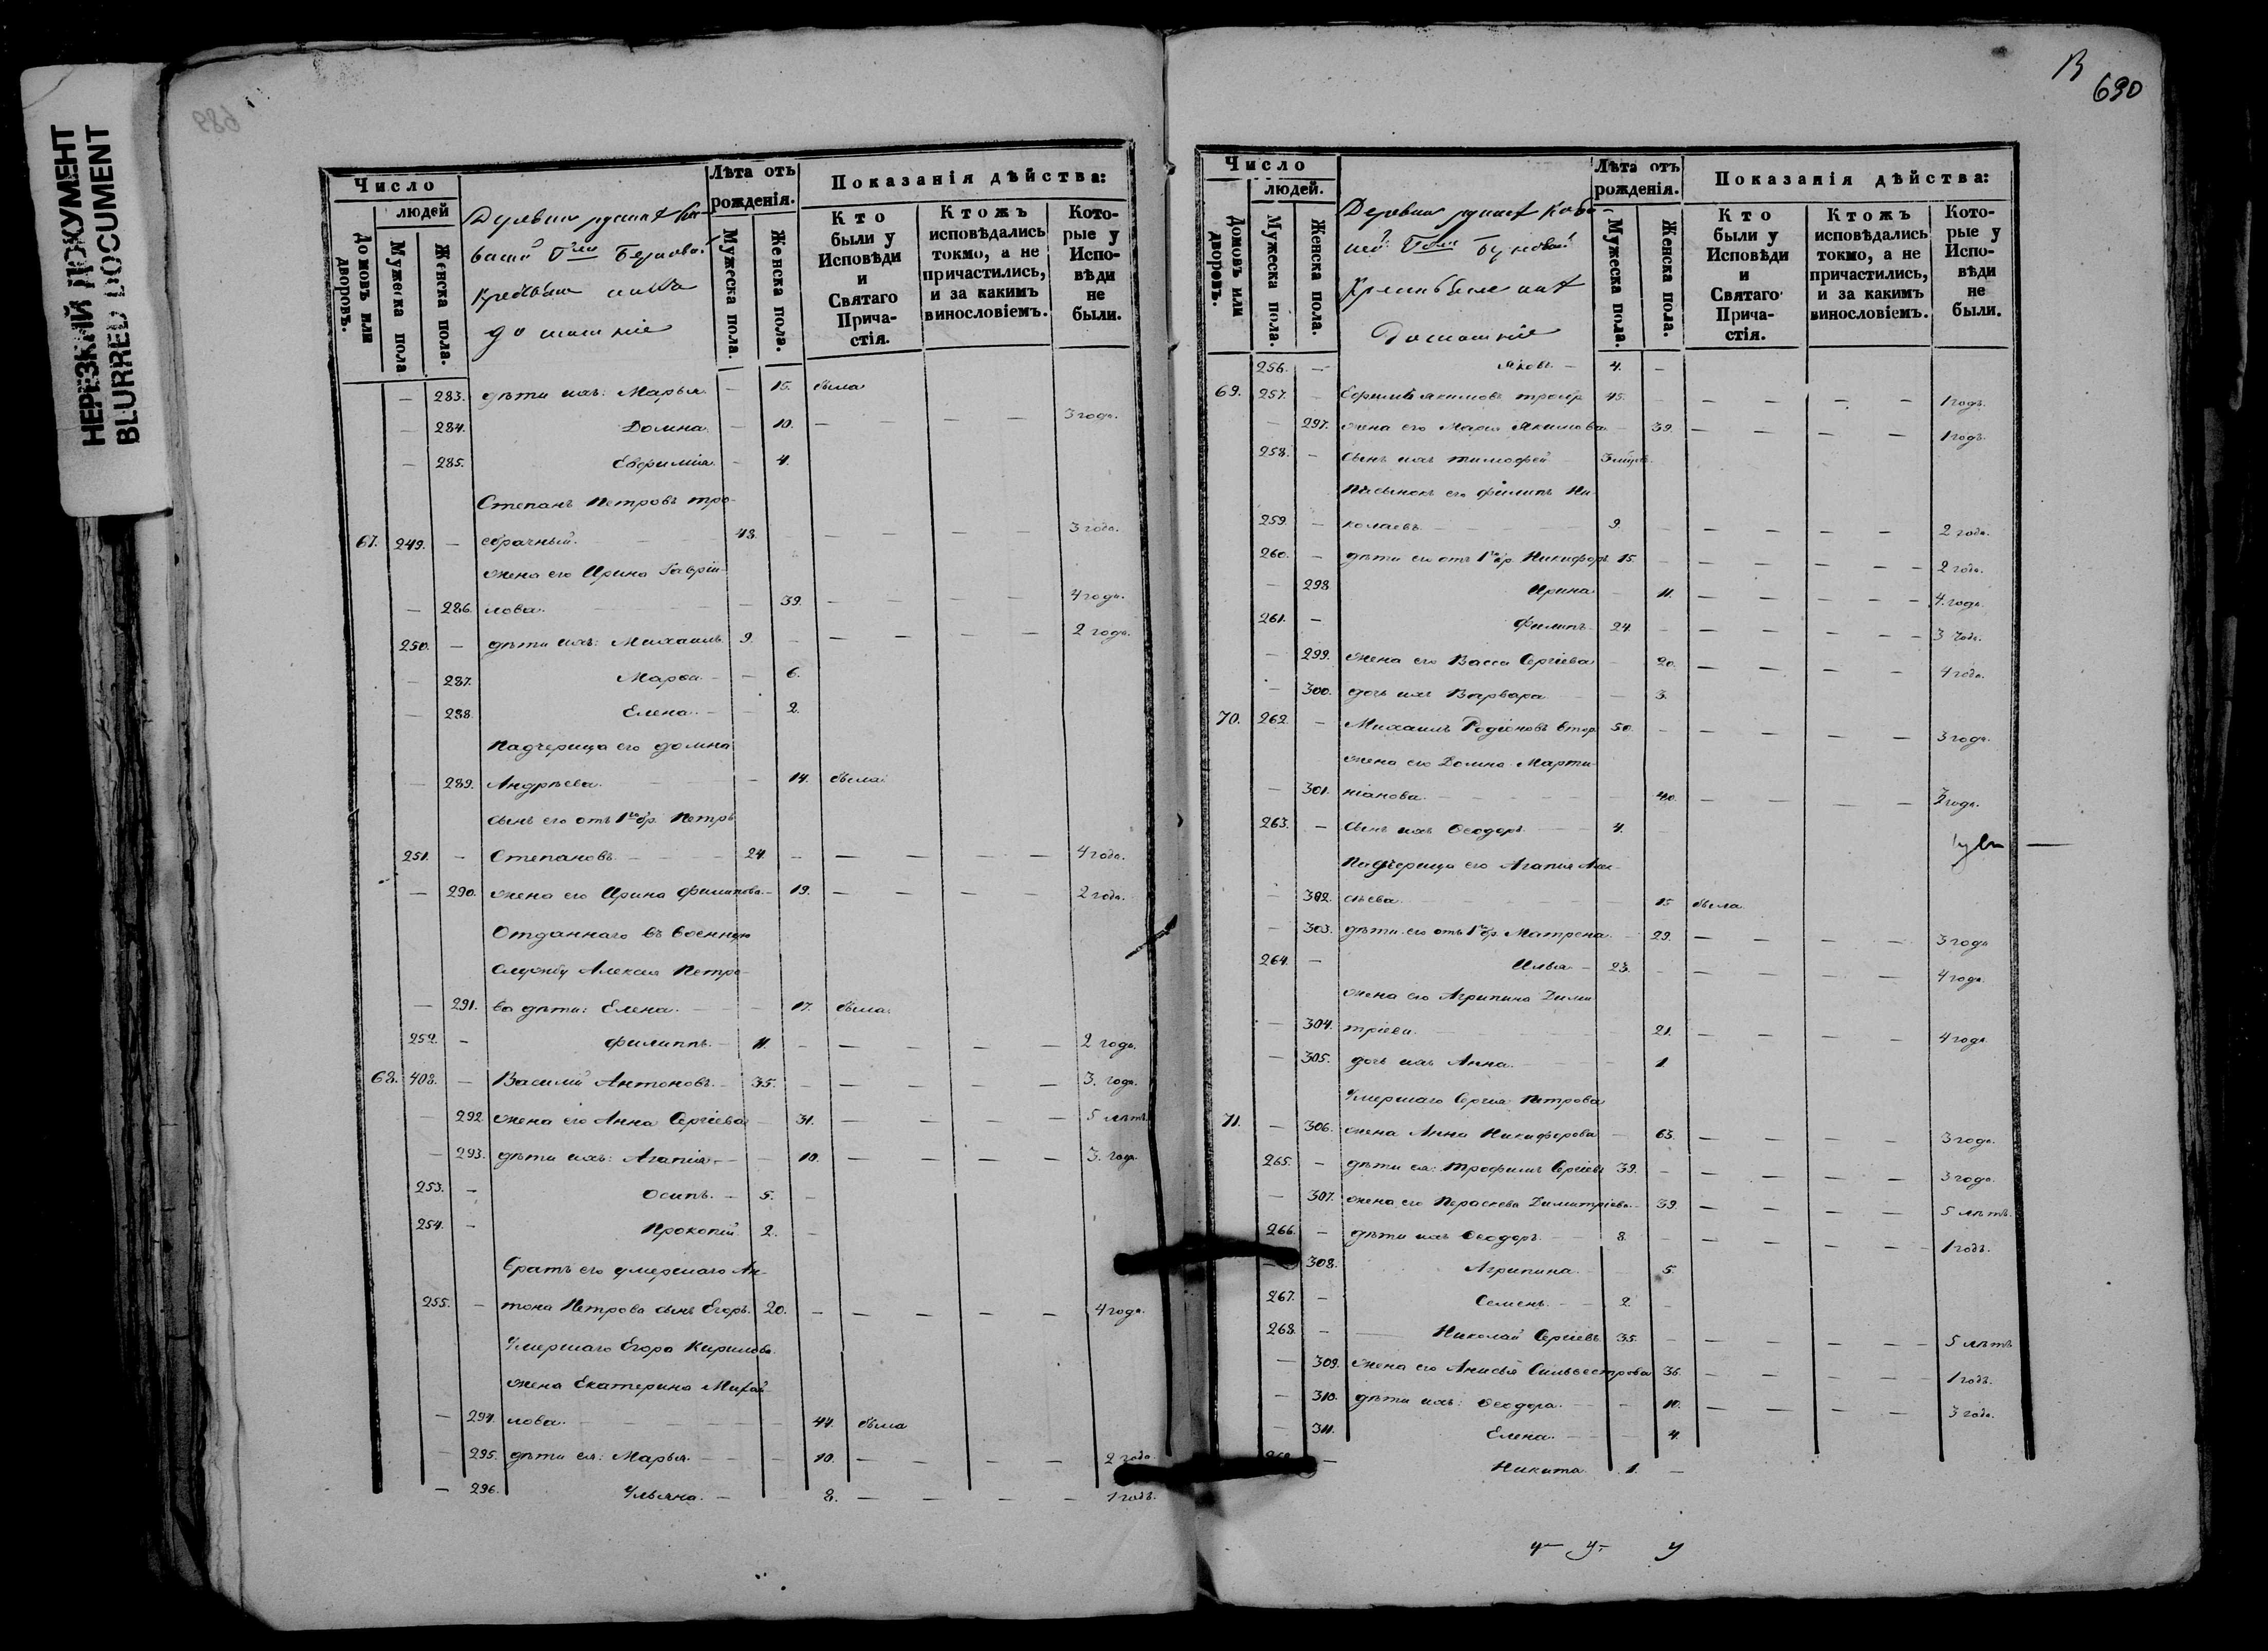 НЕРЕЗКИЙ ДОКУМЕНТ
BLURRED DOCUMENT
689
Число
людей
Домовъ или дворовъ.
Мужеска пола
Женска пола.
Деревни
крестьяне
домашніе
Лѣта отъ рожденія.
Мужеска пола.
Женска пола.
Показанія дѣйства:
Кто были у Исповѣди и Святаго Прича-стія.
Ктожъ исповѣдались токмо, а не причастились, и за какимъ винословіемъ.
Кото-рые у Испо-вѣди не были.
— 283. дѣти ихъ: Марья. — 15. была
— 284. Домна. — 10. — — — — 3 года.
— 285. Евфимия. — 4.
Степанъ Петровъ тро-
67. 249. — ебрачный. 48. — — — — 3 года.
жена его Ирина Гаврiи-
— 286. лова. — 39. — — — — 4 года.
250. — дѣти ихъ: Михаилъ. 9. — — — — — 2 года.
— 287. Марѳа. — — 6.
— 288. Елена. — — 2.
Падчерица его Домна
— 289. Андрѣева. — 14. была
сынъ его отъ 1го бр. Петръ
251. — Степановъ. 24. — — — — — 4 года.
— 290. жена его Ирина Филипова. — 19. — — — — 2 года.
Отданнаго въ военную
службу Алексѣя Петро-
— 291. ва дѣти: Елена. — 17. была.
252. — Филиппъ. — 11. — — — — — 2 года.
68. 408. — Василій Антоновъ. 35. — — — — — 3. года.
— 292. жена его Анна Сергіева — 31. — — — — 5 лѣтъ.
— 293. дѣти ихъ: Агапія. — — 10. — — — — 3. года.
253. — Осипъ. — 5. —
254. — Прокопій. 2. —
брата его умершаго Ан-
255. — тона Петрова сынъ Егоръ. 20. — — — — — 4 года.
Умершаго Егора Кирилова
жена Екатерина Михай-
— 294. лова. — 44. была
— 295. дѣти ея: Марья. — 10. — — — — 2 года
— 296. Ульяна. — 8. — — — — 1 годъ.
690
Число
людей.
Домовъ или дворовъ.
Мужеска пола.
Женска пола.
Деревни
Домашніе
Лѣта отъ рожденія.
Мужеска пола.
Женска пола.
Показанія дѣйства:
Кто были у Исповѣди и Святаго Прича-стія.
Ктожъ исповѣдались токмо, а не причастились, и за какимъ винословіемъ.
Кото-рые у Испо-вѣди не были.
256. — Яковъ. — 4. —
69. 257. — Ефимій Якимовъ 45. — — — — — 1 годъ.
— 297. жена его Марія Якимова — 39. — — — — 1 годъ.
258. — сынъ ихъ Тимофей
Пасынокъ его Филипъ Ни-
259. — колаевъ. 9. — — — — — 2 года.
260. — дѣти его отъ 1го бр. Никифоръ 15. — — — — — 2 года.
— 298. Ирина — 11. — — — — — 4. года.
261. — Филипъ. 24. — — — — — 3 года.
— 299. жена его Васса Сергіева — 20. — — — — 4 года.
— 300. дочь ихъ Варвара — 3.
70. 262. — Михаилъ Родіоновъ втор. 50. — — — — — 3 года.
жена его Домна Марти-
— 301. ніанова. 40. — — — — 2 года.
263. — сынъ ихъ Ѳеодоръ. 4. —
Падчерица его Агапія Алек-
— 302. сѣева. 15 была
— 303. дѣти его отъ 1го бр. Матрена. — 29. — — — — 3 года
264. — Илья. — 23. — — — — — 4 года
жена его Агрипина Дими-
— 304. тріева. 21. — — — — 4 года
— 305. дочь ихъ Анна. 1.
Умершаго Сергѣя Петрова
71. — 306. жена Анна Никифорова — 63. — — — — 3 года.
265. — дѣти ея: Трофимъ Сергіевъ 39. — — — — — 3 года.
— 307. жена его Параскева Димитріева. 39. — — — — 5 лѣтъ.
266. — дѣти ихъ Ѳеодоръ. 8. — — — — — 1 годъ.
— 308. Агрипина. 5.
267. — Семенъ. — 2. —
268. — Николай Сергіевъ 35. — — — — — 5 лѣтъ
— 309. жена его Анисья Сильвестрова 36. — — — — 1 годъ.
— 310. дѣти ихъ: Ѳеодора. — 10. — — — — 3 года.
— 311. Елена. — 4.
— Никита 1. —